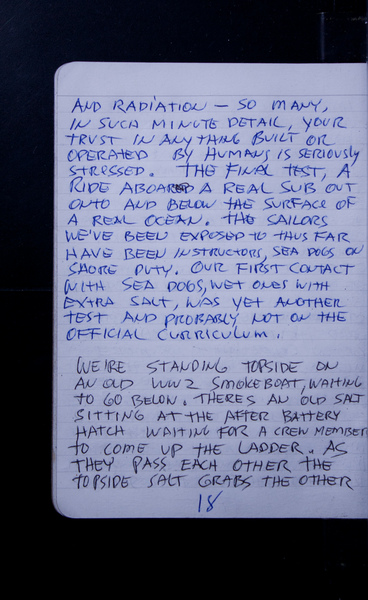 AND RADIATION — SO MANY,
IN SUCH MINUTE DETAIL, YOUR
TRUST IN ANYTHING BUILT OR
OPERATED BY HUMANS IS SERIOUSLY
STRESSED. THE FINAL TEST, A
RIDE ABOARD A REAL SUB OUT
ONTO AND BELOW THE SURFACE OF
A REAL OCEAN. THE SAILORS
WE'VE BEEN EXPOSED TO THUS FAR
HAVE BEEN INSTRUCTORS, SEA DOGS ON
SHORE DUTY. OUR FIRST CONTACT
WITH SEA DOGS, WET ONES WITH
EXTRA SALT, WAS YET ANOTHER
TEST AND PROBABLY NOT ON THE
OFFICIAL CURRICULUM.
WE'RE STANDING TOPSIDE ON
AN OLD WW2 SMOKEBOAT, WAITING
TO GO BELOW. THERES AN OLD SALT
SITTING AT THE AFTER BATTERY
HATCH WAITING FOR A CREW MEMBER
TO COME UP THE LADDER. AS
THEY PASS EACH OTHER THE
TOPSIDE SALT GRABS THE OTHER
18